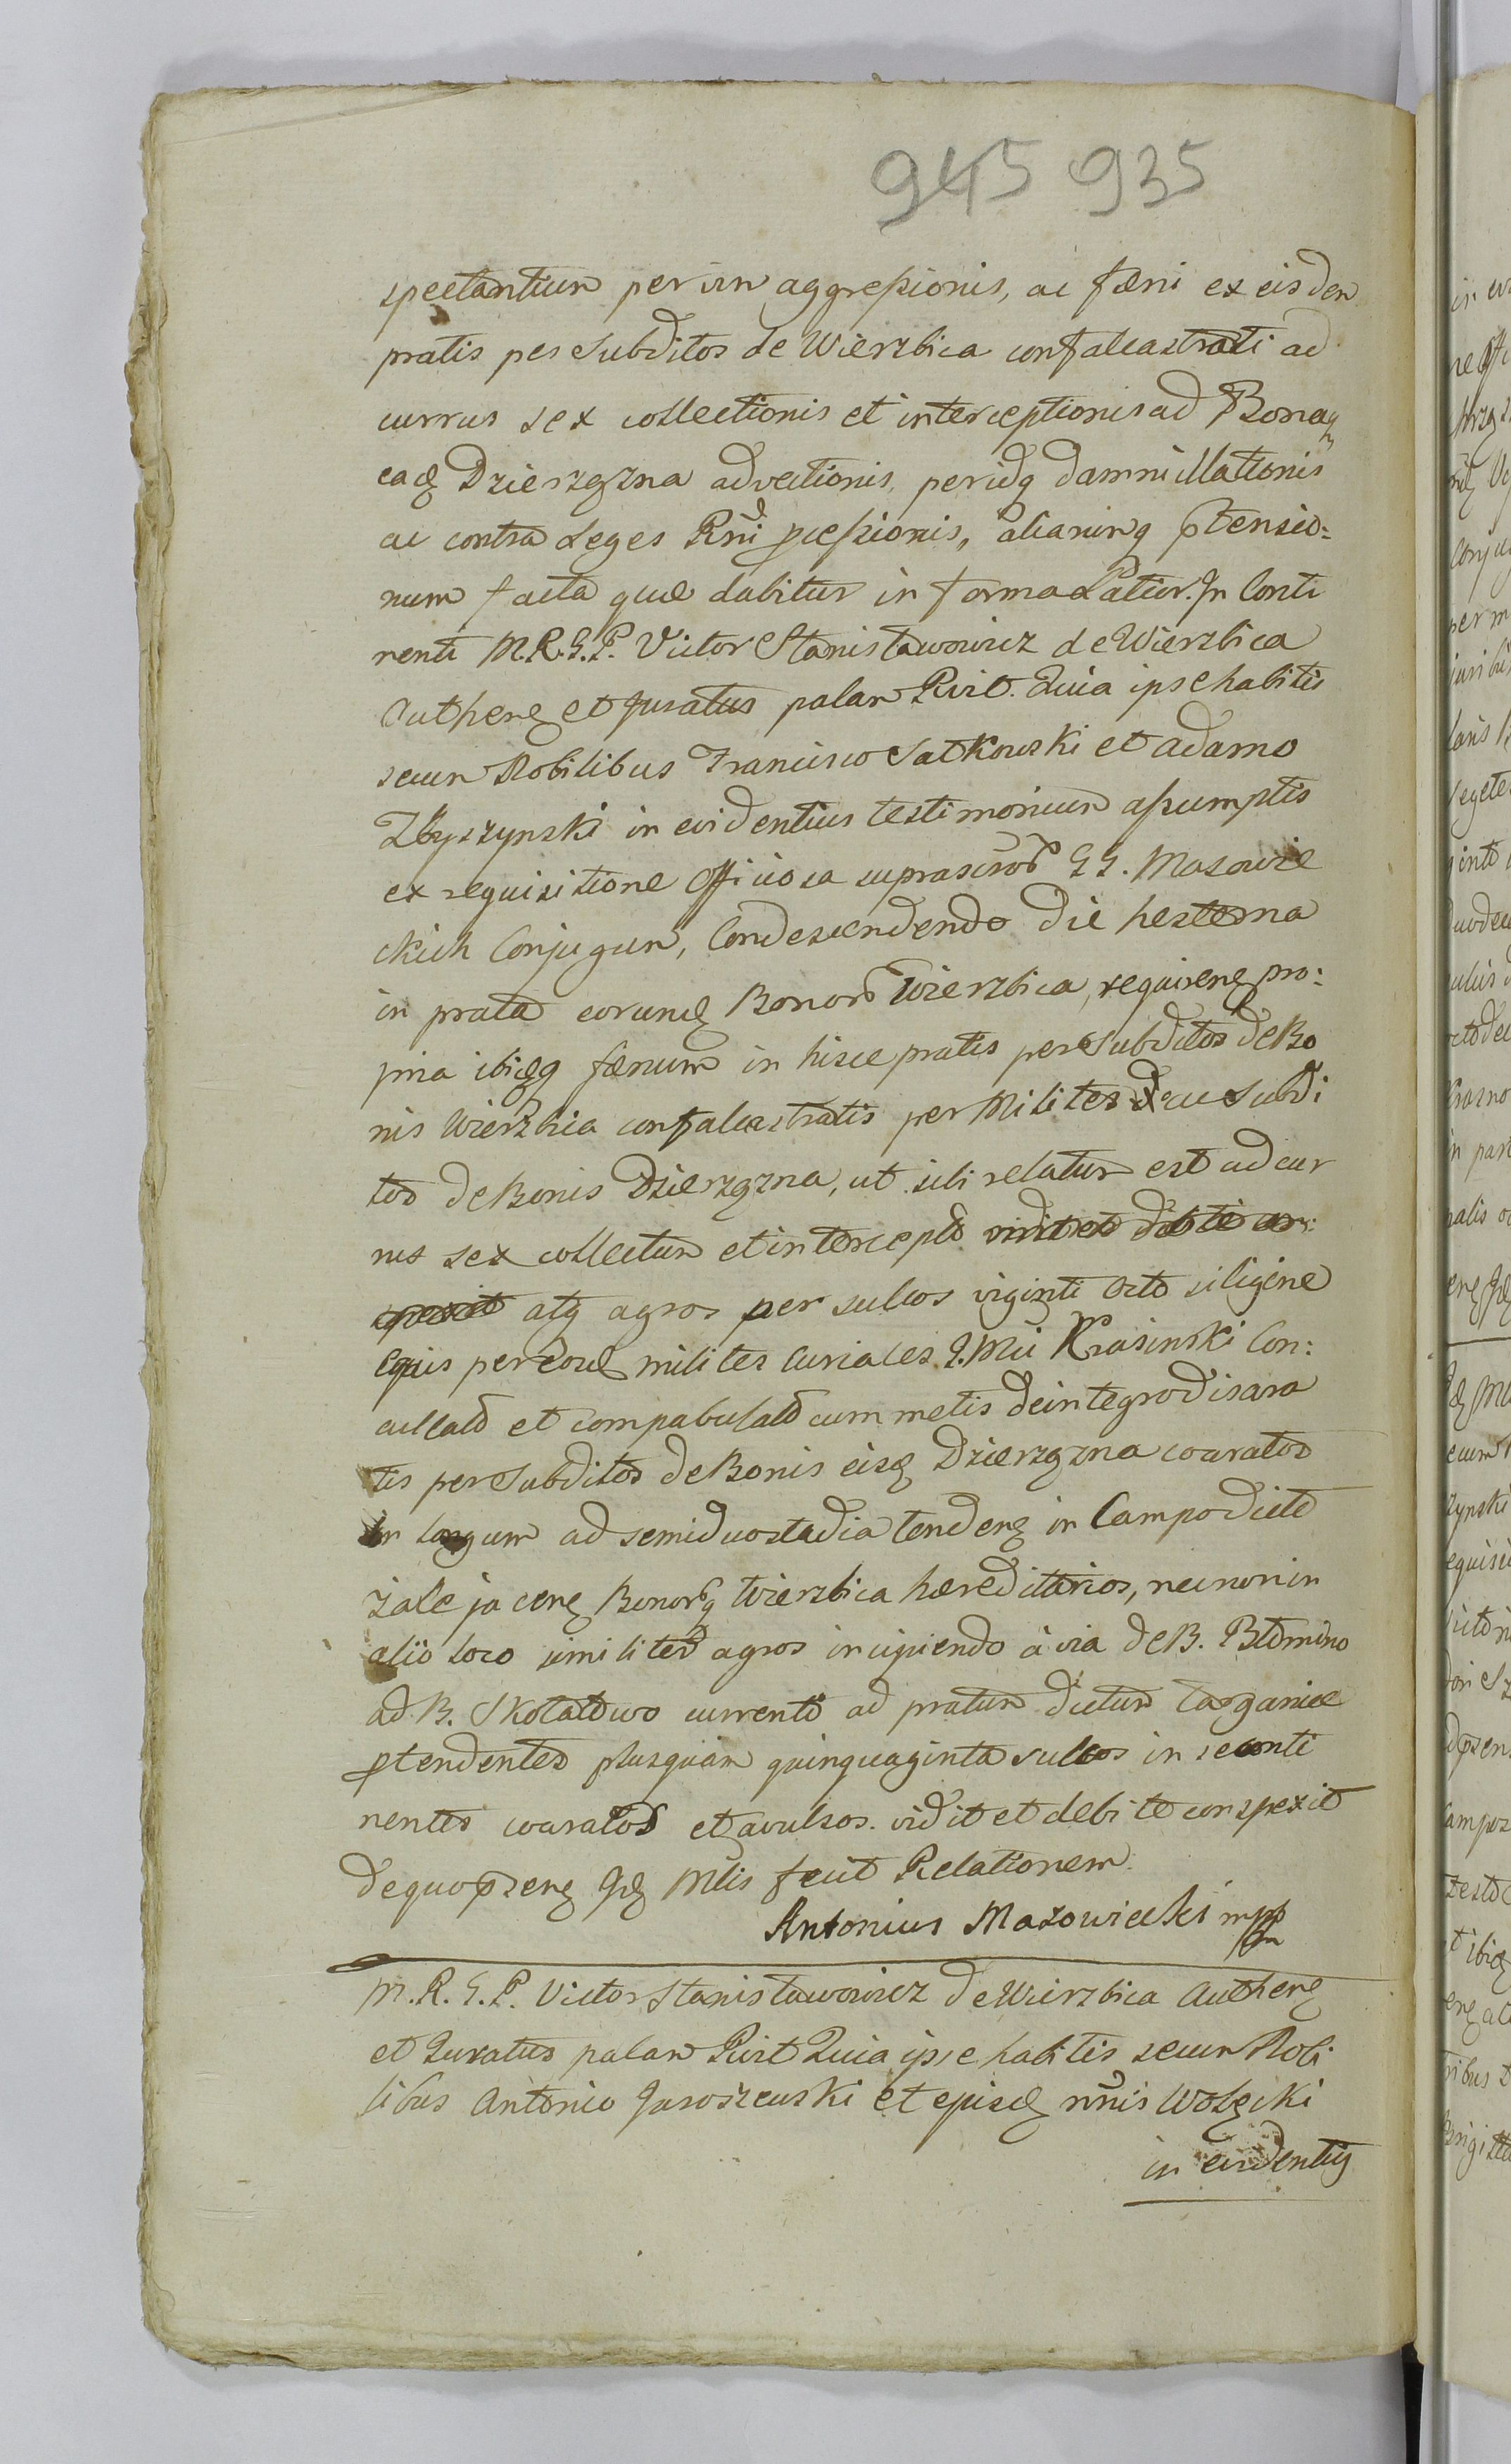 945 935
spectantium per vim aggressionis, ac fæni ex eisdem
pratis per Subditos de Wierzbica confalcastrati ad
currus sex collectionis et interceptionis ad Bona
eadę Dzierzgzna advectionis, per idq damni illationis
ac contra Leges Rni pcessionis, aliarumq ptensio:
num facta que dabitur in forma Latior. In Conti
nenti M.R.G.P. Victor Stanisławowicz de Wierzbica
Authenę et Juratus palam Rvit. Quia ipse habitis
secum Nobilibus Francisco Satkowski et Adamo
Zbyszynski in evidentius testimonium assumptis
ex requisitione officiosa suprascrod GG. Mazowie
ckich Conjugum, Condescendendo die hesterna
in prata eorundę Bonor Wierzbica, requirenę pro:
pria ibidęq fænum in hisce pratis per Subditos de Bo
nis Wierzbica confalcastratis per Milites ac Subdi
tos de Bonis Dzierzgzna, ut sibi relatum est ad cur
rus sex collectum et intercept
atq agros per sulcos viginti octo siligine
Equis per eosdę milites Curiales G. Mci Krasinski Con:
culcato et compabulato cum metis de integro disara
tis per Subditos de Bonis eisdę Dzierzgzna coaratos
in longum ad semiduo stadia tendenę in Campo dicto
Zale jacenę Bonorq Wierzbica hæreditarios, necnon in
alio loco similiter agros incipiendo à via de B. Btomino
ad B. Skołatowo currenti ad pratum dictum Targanice
ptendentes plusquàm quinquaginta sulcos in se conti
nentes coaratos et avulsos. vidit et debite conspexit
de quo psenę Idę Mlis fecit Relationem.
Antonius Mazowiecki mpp
M.R.G.P. Victor Stanisławowicz de Wierzbica Authenę
et Juratus palam Rvit Quia ipse habitis secum Nobi
libus Antonio Jaroszewski et ejusdę nnis Wolęcki
in evidentiq